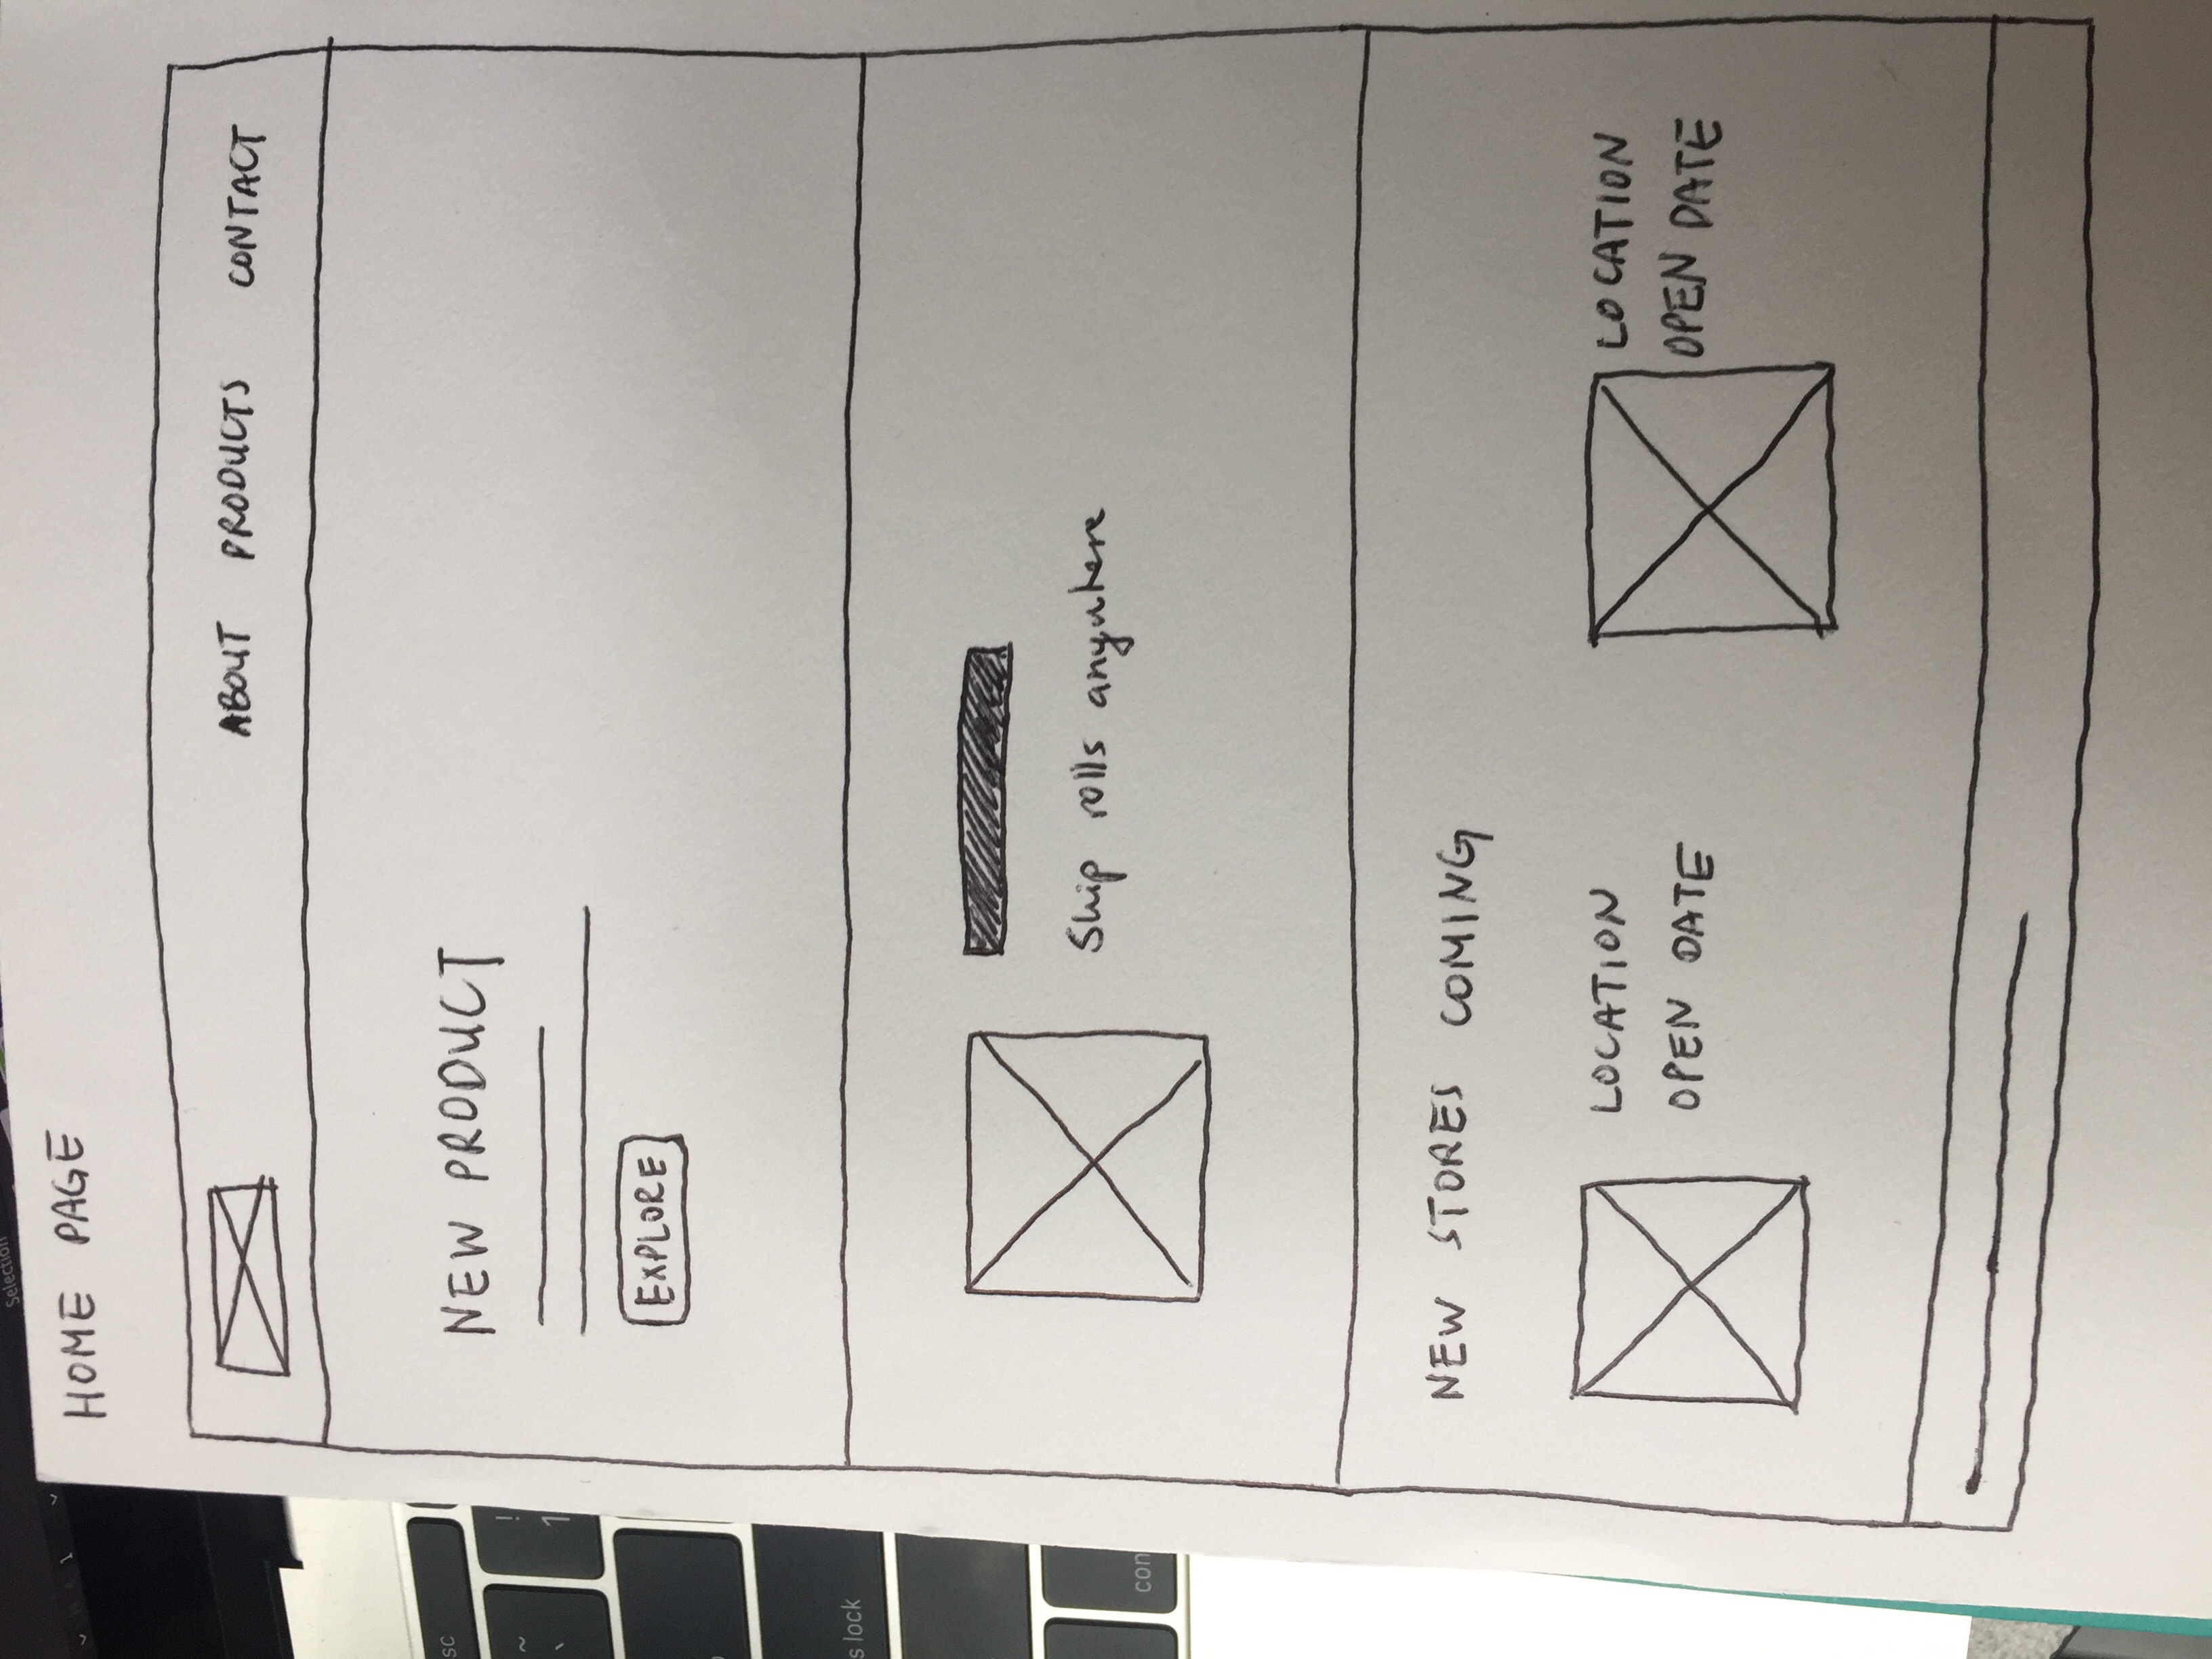 Selection
1
HOME PAGE
ABOUT PRODUCTS CONTACT
NEW PRODUCT
EXPLORE
Ship rolls anywhere
NEW STORES COMING
LOCATION
OPEN DATE
LOCATION
OPEN DATE
sc
~
`
!
1
s lock
con